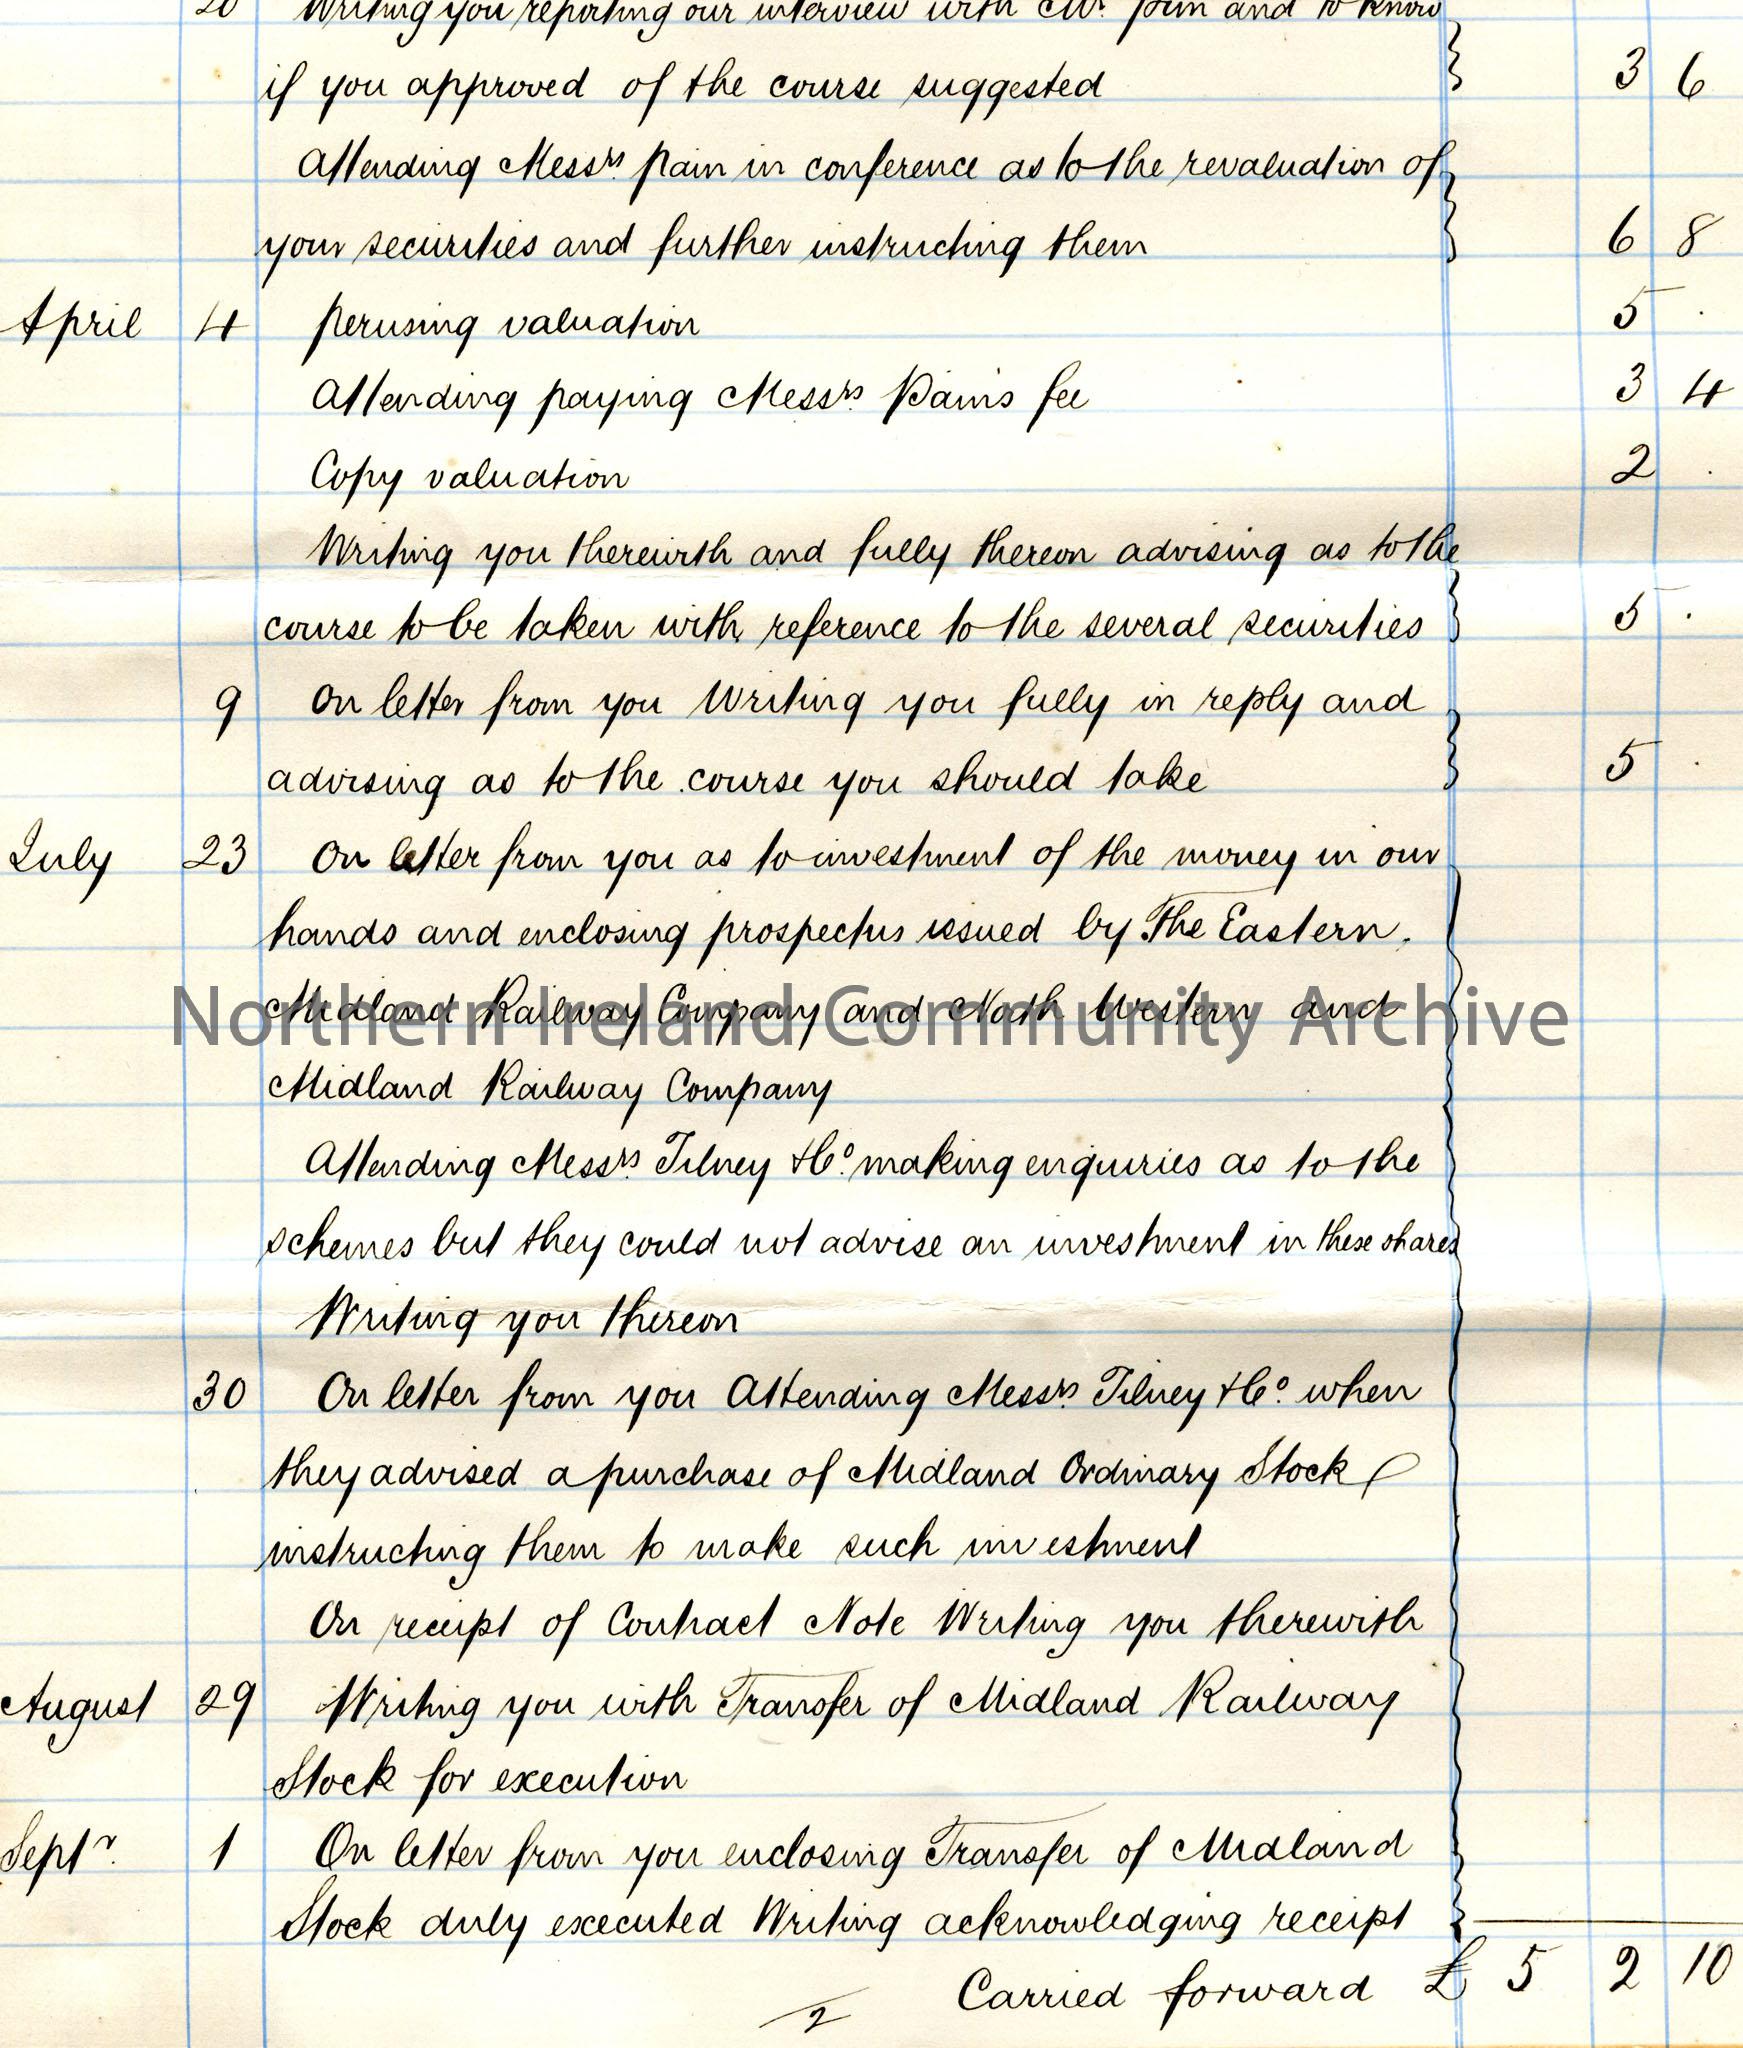 20 Writing you reporting our interview with Mr. and to know
if you approved of the course suggested 3 6
Attending Messrs. Pain in conference as to the revaluation of
your securities and further instructing them 6 8
April 4 Perusing valuation 5 .
Attending paying Messrs. Pain's fee 3 4
Copy valuation 2 .
Writing you therewith and fully thereon advising as to the
course to be taken with reference to the several securities 5 .
9 On letter from you Writing you fully in reply and
advising as to the course you should take 5 .
July 23 On letter from you as to investment of the money in our
hands and enclosing prospectus issued by The Eastern
Midland Railway Company and North Western and
Northern Ireland Community Archive
Midland Railway Company
Attending Messrs. Tilney & Co. making enquiries as to the
schemes but they could not advise an investment in these shares
Writing you thereon
30 On letter from you Attending Messrs. Tilney & Co. when
they advised a purchase of Midland Ordinary Stock
instructing them to make such investment
On receipt of Contract Note Writing you therewith
August 29 Writing you with Transfer of Midland Railway
Stock for execution
Septr. 1 On letter from you enclosing Transfer of Midland
Stock duly executed Writing acknowledging receipt
Carried forward £ 5 2 10
2